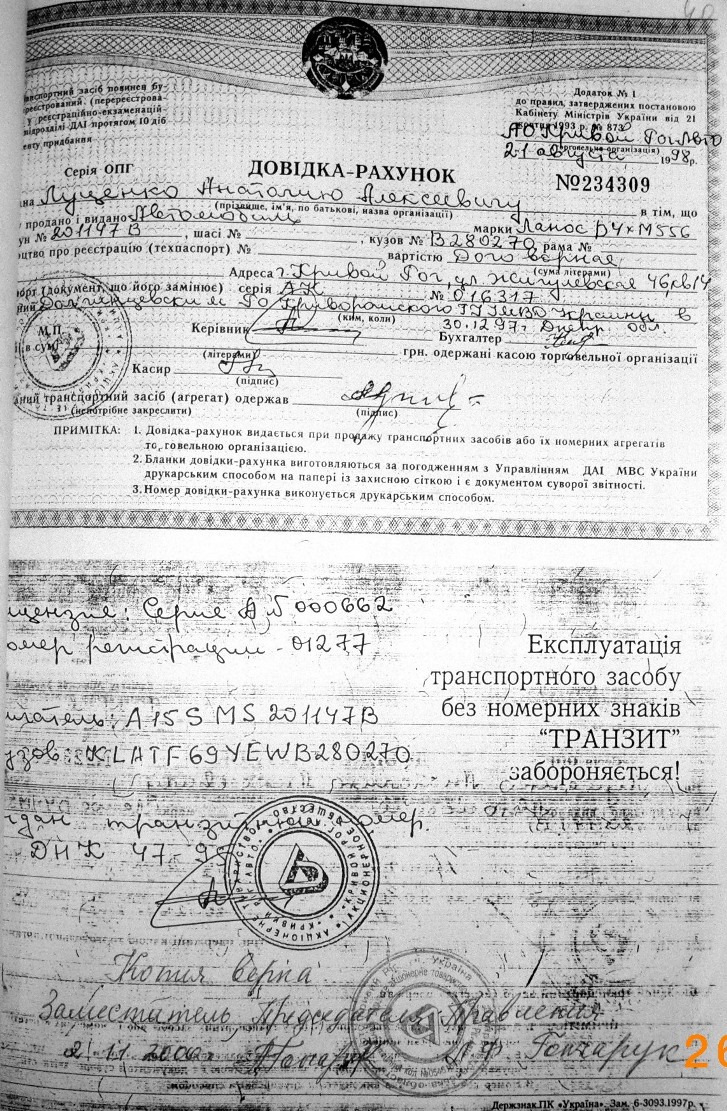 40
анспортний засіб повинен бу-
реєстрований (перереєстрова-
у реєстраційно-екзаменацій-
підрозділі ДАІ протягом 10 діб
енту придбання
Додаток № 1
до правил, затверджених постановою
Кабінету Міністрів України від 21
жовтня 1993 р. № 873
АО Кривой Рог Авто
(торговельна організація)
21 августа 1998р.
Серія ОПГ
ДОВІДКА-РАХУНОК
№234309
на Луценко Анатолию Алексеевичу в тім, що
(прізвище, ім'я, по батькові, назва організації)
продано і видано Автомобиль марки Ланос
ун № 201147В, шасі № , кузов № В280270 рама №
цтво про реєстрацію (техпаспорт) № вартістю Договорная
(сума літерами)
Адреса г. Кривой Рог, ул Жигулевская 46, кв14
порт (документ, що його замінює) серія АК № 016317
ний Долгинцевским РО Криворожского Украины в
(ким, коли) 30.12.97г Днепр. обл.
М.П.
Керівник Бухгалтер
ї в сумі грн. одержані касою торговельної організації
(літерами)
Касир
(підпис)
аний транспортний засіб (агрегат) одержав
(непотрібне закреслити) (підпис)
ПРИМІТКА: 1. Довідка-рахунок видається при продажу транспортних засобів або їх номерних агрегатів
торговельною організацією.
2. Бланки довідки-рахунка виготовляються за погодженням з Управлінням ДАІ МВС України
друкарським способом на папері із захисною сіткою і є документом суворої звітності.
3. Номер довідки-рахунка виконується друкарським способом.
ицензия: Серия А № 000662
омер регистрации - 01277
Експлуатація
транспортного засобу
без номерних знаків
“ТРАНЗИТ”
забороняється!
игатель: A15SMS 201147B
узов: KLATF69YEWB280270
ыдан транзитный номер.
ДНК 47 9
Копия верна
Заместитель Председателя Правления
2.11.2006г Гончарук Л Ф Гончарук
26
Держзнак.ПК «Україна». Зам. 6-3093.1997р.